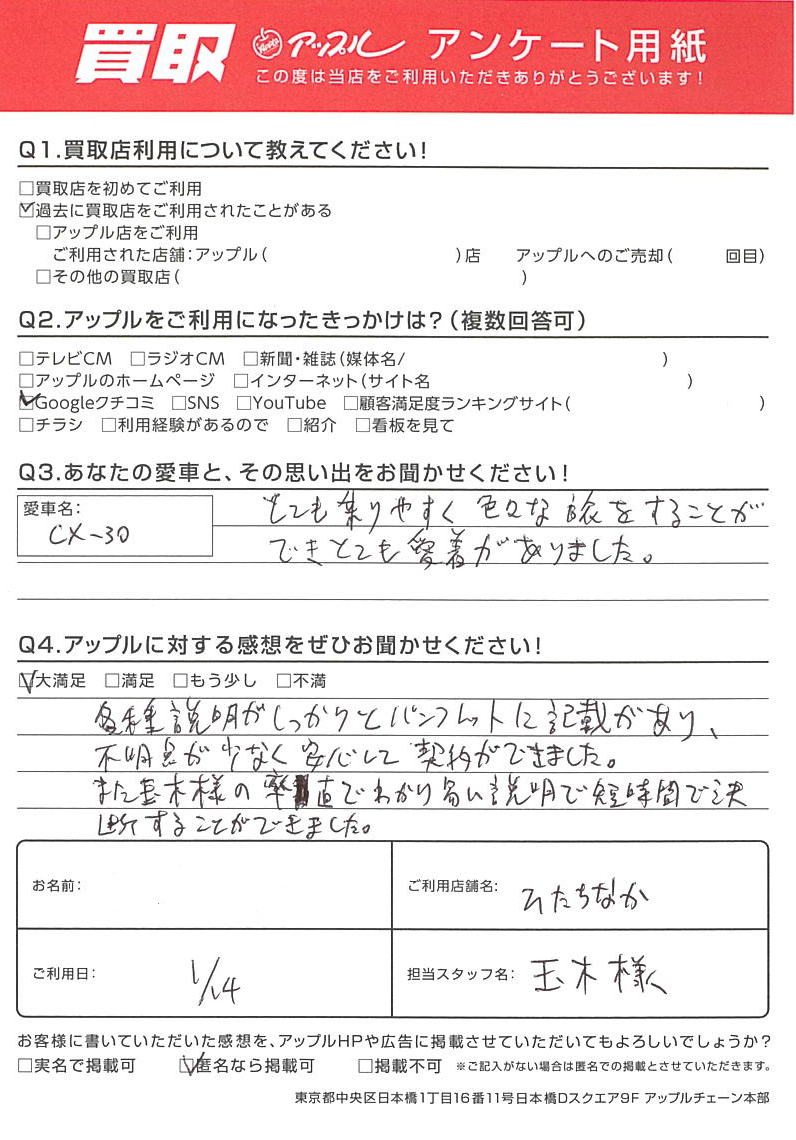 買取 Apple アップル アンケート用紙
この度は当店をご利用いただきありがとうございます!
Q1.買取店利用について教えてください!
□買取店を初めてご利用
☑過去に買取店をご利用されたことがある
□アップル店をご利用
ご利用された店舗:アップル( )店 アップルへのご売却( 回目)
□その他の買取店( )
Q2.アップルをご利用になったきっかけは?(複数回答可)
□テレビCM □ラジオCM □新聞・雑誌(媒体名/ )
□アップルのホームページ □インターネット(サイト名 )
☑Googleクチコミ □SNS □YouTube □顧客満足度ランキングサイト( )
□チラシ □利用経験があるので □紹介 □看板を見て
Q3.あなたの愛車と、その思い出をお聞かせください!
愛車名:
CX-30
とても乗りやすく色々な旅をすることが
できとても愛着がありました。
Q4.アップルに対する感想をぜひお聞かせください!
☑大満足 □満足 □もう少し □不満
各種説明がしっかりとパンフレットに記載があり、
不明点が少なく安心して契約ができました。
また玉木様の率直でわかり易い説明で短時間で決
断することができました。
お名前:
ご利用店舗名: ひたちなか
ご利用日: 1/14
担当スタッフ名: 玉木様
お客様に書いていただいた感想を、アップルHPや広告に掲載させていただいてもよろしいでしょうか?
□実名で掲載可 ☑匿名なら掲載可 □掲載不可 ※ご記入がない場合は匿名での掲載とさせていただきます。
東京都中央区日本橋1丁目16番11号日本橋Dスクエア9F アップルチェーン本部